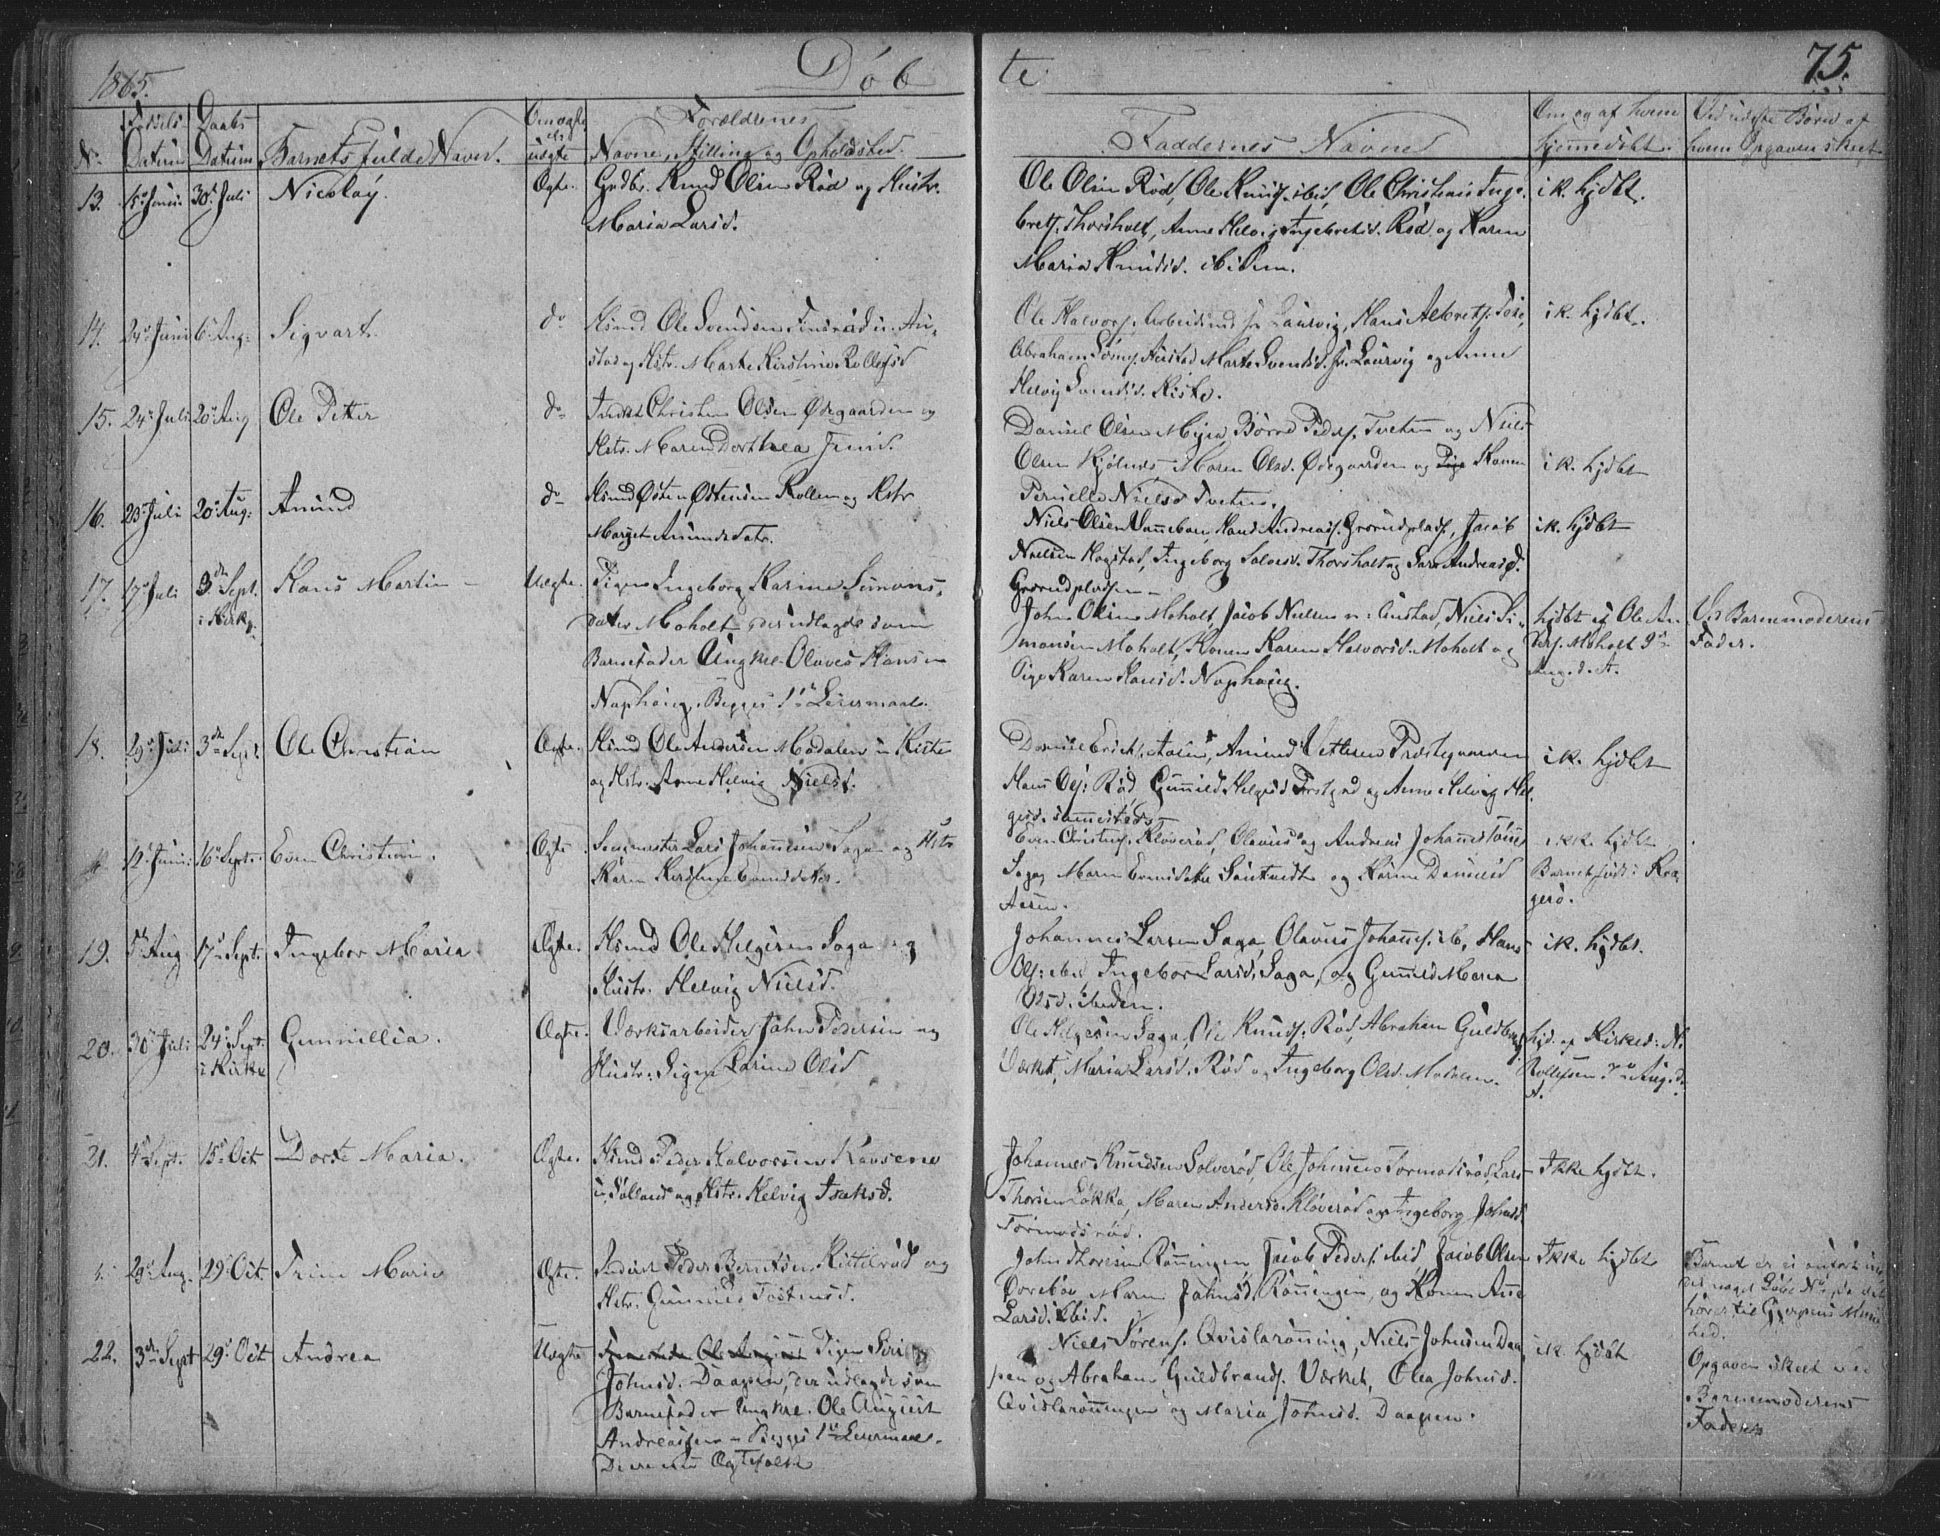 1865.
Døb
te
75.
No
Fødsels-
Datum
Daabs
Datum
Barnets fulde Navn.
Om ægte
el.
uægte
Forældrenes
Navne, Stilling og Opholdssted.
Faddernes Navne
Om og af hvem
hjemmedøbt.
Ved uægte Børn af
hvem Opgaven skeet
13. 15de Juni 30te Juli Nicolay. Ægte. Grdbr. Knud Olsen Rød og Hustr.
Maria Larsd.
Ole Olsen Rød, Ole Knuds. ibid, Ole Christens. Inge-
brets. Thorsholt, Anne Helvig Ingebretsd. Rød og Karen
Maria Knudsd. ibidem.
ik. hjdbt.
14. 24de Juni 6te Aug: Sigvart. do Hsmd Ole Svendsen u. Au-
stad og Hstr. Marte Kirstine Rollefsd
Ole Halvors. Arbeidsmd fr. Laurvig, Hans Albrets.
Abraham Austad, Marte Svendsd. fr. Laurvig og Anne
Helvig Svendsd. Kiste.
ik. hjdbt.
15. 24de Juli 20de Aug Ole Petter do Christen Olsen Ødegaarden og
Hstr. Maren Dorthea Jensd.
Daniel Olsen Myra, Børre Peders. Tveten og Niels
Olsen Maren Olsd. Ødegaarden og Pige Konen
Pernille Nielsd Tveten.
ik. hjdbt
16. 23de Juli 20de Aug: Amund do Hsmd Østen Østensen Rollen og Hstr
Marget Amundsdatr.
Niels Olsen Vanneboen, Hans Andreas. Grorudplads., Jacob
Nielsen Hogstad, Ingeborg Solvesd. Thorsholt og Sara Andreasd.
Grorudpladsen
ik. hjdbt
17. 17de Juli 3die Sept.
i Kirk. Hans Martin Uægte. Pigen Ingeborg Karine Simons-
datter Moholt, der udlagde som
Barnefader Ungkrl. Olaves Hansen
Naphoug. Begges 1ste Leiermaal.
John Olsen Moholt, Jacob Nielsen u. Austad, Niels Si-
monsen Moholt, Konen Karen Halvorsd. Moholt og
Pige Karen Hansd. Naphoug.
hjdbt af Ole An-
ders. Moholt 9de
Aug. d. A.
Ved Barnemoderens
Fader.
18. 29de Juli 3die Sept. Ole Christian Ægte. Hsmd Ole Andersen Modalen u. Kiste
og Hstr. Anne Helvig Nielsd.
Daniel Erichs. Aasen, Amund Vetlesen Præstegaarden
Hans Ols: Rød Gunnild Helgesd og Anne Helvig Hel-
gesd. sammesteds
ik. hjdbt
12te Juni: 16de Septr. Even Christian. Ægte Lars Johannesen Saga og Hstr
Karen Kirstine Evensdatr.
Even Christens. Kløverød, Olavus og Andreas Johannessønner
Saga, Maren Evensdatter og Karine Danielsd
Aasen.
ikke hjdbt
Barnet født i Kra-
gerø.
19. 5te Aug 17de Sept. Ingebor Maria Ægte. Hsmd Ole Helgesen Saga og
Hustr. Helvig Nielsd.
Johannes Larsen Saga, Olavus Johans. ib., Hans
Ols: ibid Ingebor Larsd. Saga, og Gunnild Maria
Olsd. ibidem.
ik. hjdbt.
20. 30te Juli 24de Sept.
i Kirke Gunnillia. Ægte. Værksarbeider John Pedersen og
Hustr. Signe Larine Olsd
Ole Helgesen Saga, Ole Knuds: Rød, Abraham Guldbrands.
Værket, Maria Larsd. Rød og Ingeborg Olsd. Modalen.
hjd. af Kirkes: N.
Rollefsen 7de Aug. d.
A.
21. 4de Sept. 15de Oct Dorte Maria. Ægte. Hsmd Peder Halvorsen
u. Sølland og Hstr. Helvig Isaksd.
Johannes Knudsen Solverød, Ole Johannes Tormodsrød, Lars
Thorsen Løkka, Maren Andersd. Kløverød og Ingeborg Johnsd.
Tormodsrød.
Ikke hjdbt.
29de Aug. 29de Oct. Trine Marie Ægte. Peder Berntsen Kittilrød og
Hstr. Gunnild Tostensd.
John Thoresen Rønningen, Jacob Peders. ibid, Jacob Olsen
Dorebøe Maren Johnsd. Rønningen, og Konen Anne
Larsd. ibid.
Ikke hjdbt
Barnet er ei anført un-
der noget Løbe No, da det
hører til Gjerpens Menig-
hed.
22. 3die Sept 29de Oct Andrea Uægte Pigen Siri
Johnsd. Daapen, der udlagde som
Barnefader Ungkrl. Ole August
Andreassen Begges 1ste Leiermaal.
De ere nu Ægtefolk
Niels Sørens. Qvislarønning, Niels Johnsen Daa-
pen og Abraham Guldbrands. Værket, Olea Johnsd.
Qvislarønningen og Maria Johnsd. Daapen.
ik. hjdbt
Opgaven skeet ved
Barnemoderens
Fader